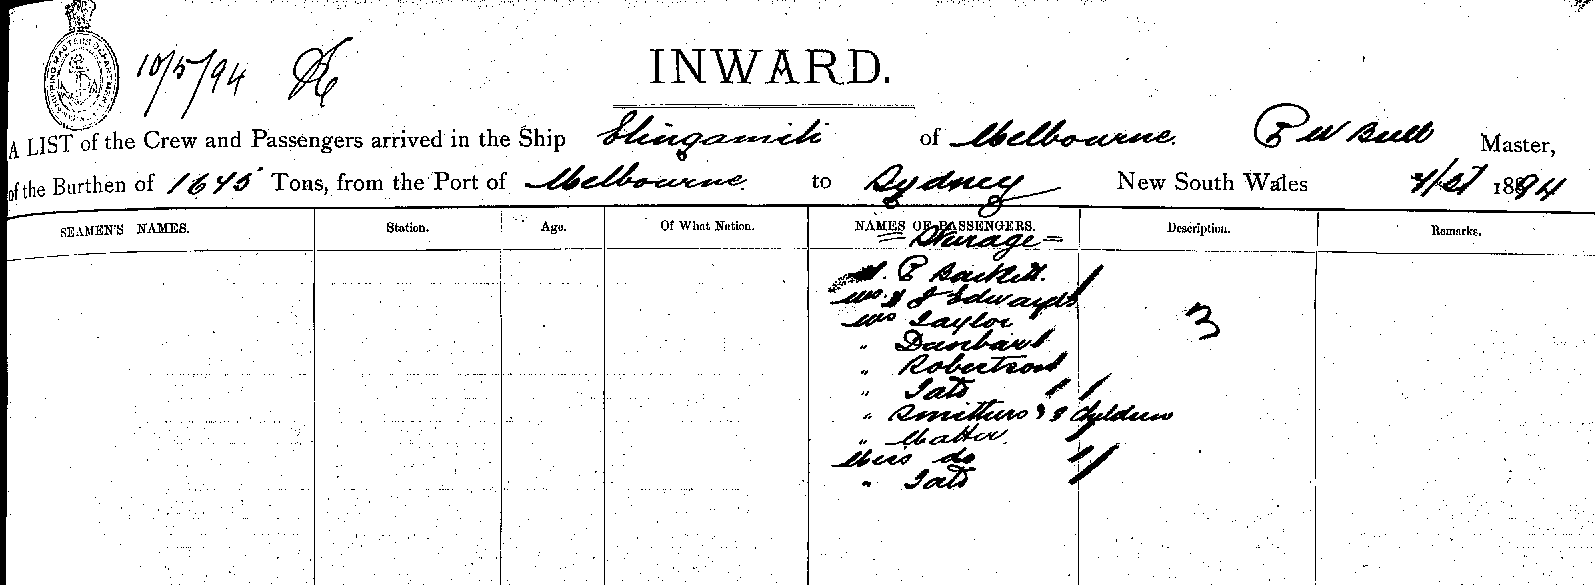 10/5/94
INWARD.
A LIST of the Crew and Passengers arrived in the Ship Elingamite of Melbourne. Master,
of the Burthen of 1645 Tons, from the Port of Melbourne. to Sydney New South Wales 1894
SEAMEN'S NAMES. Station. Age. Of What Nation. NAMES OF PASSENGERS. Description. Remarks.
= Steerage =
Edwards
Mrs Taylor
" Dunbar
" Robertson
" Tate
3
" Smithers & 3 Children
"
Miss do
" Tate